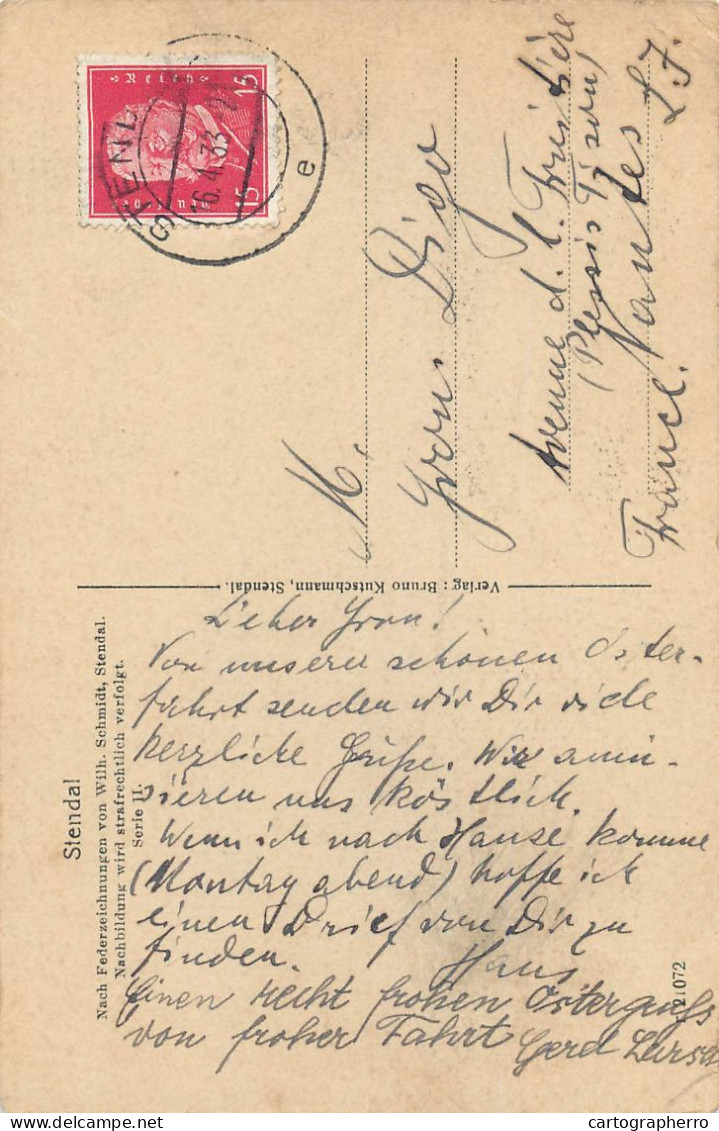 Reich
15 15
STENDAL
16.4.33
e
M.
Yvon Digo
Avenue d. l. Frusière
(Plessis Tison)
Nantes L.I.
France.
Verlag: Bruno Kutschmann, Stendal.
Stendal
Nach Federzeichnungen von Wilh. Schmidt, Stendal.
Nachbildung wird strafrechtlich verfolgt.
Serie II.
21072
Lieber Yvon!
Von unserer schönen Oster-
fahrt senden wir Dir viele
herzliche Grüße. Wir amü-
sieren uns köstlich.
Wenn ich nach Hause komme
(Montag abend) hoffe ich
einen Brief von Dir zu
finden.
Hans
Einen recht frohen Ostergruß
von froher Fahrt
Gerd
cartographer@delcampe.net